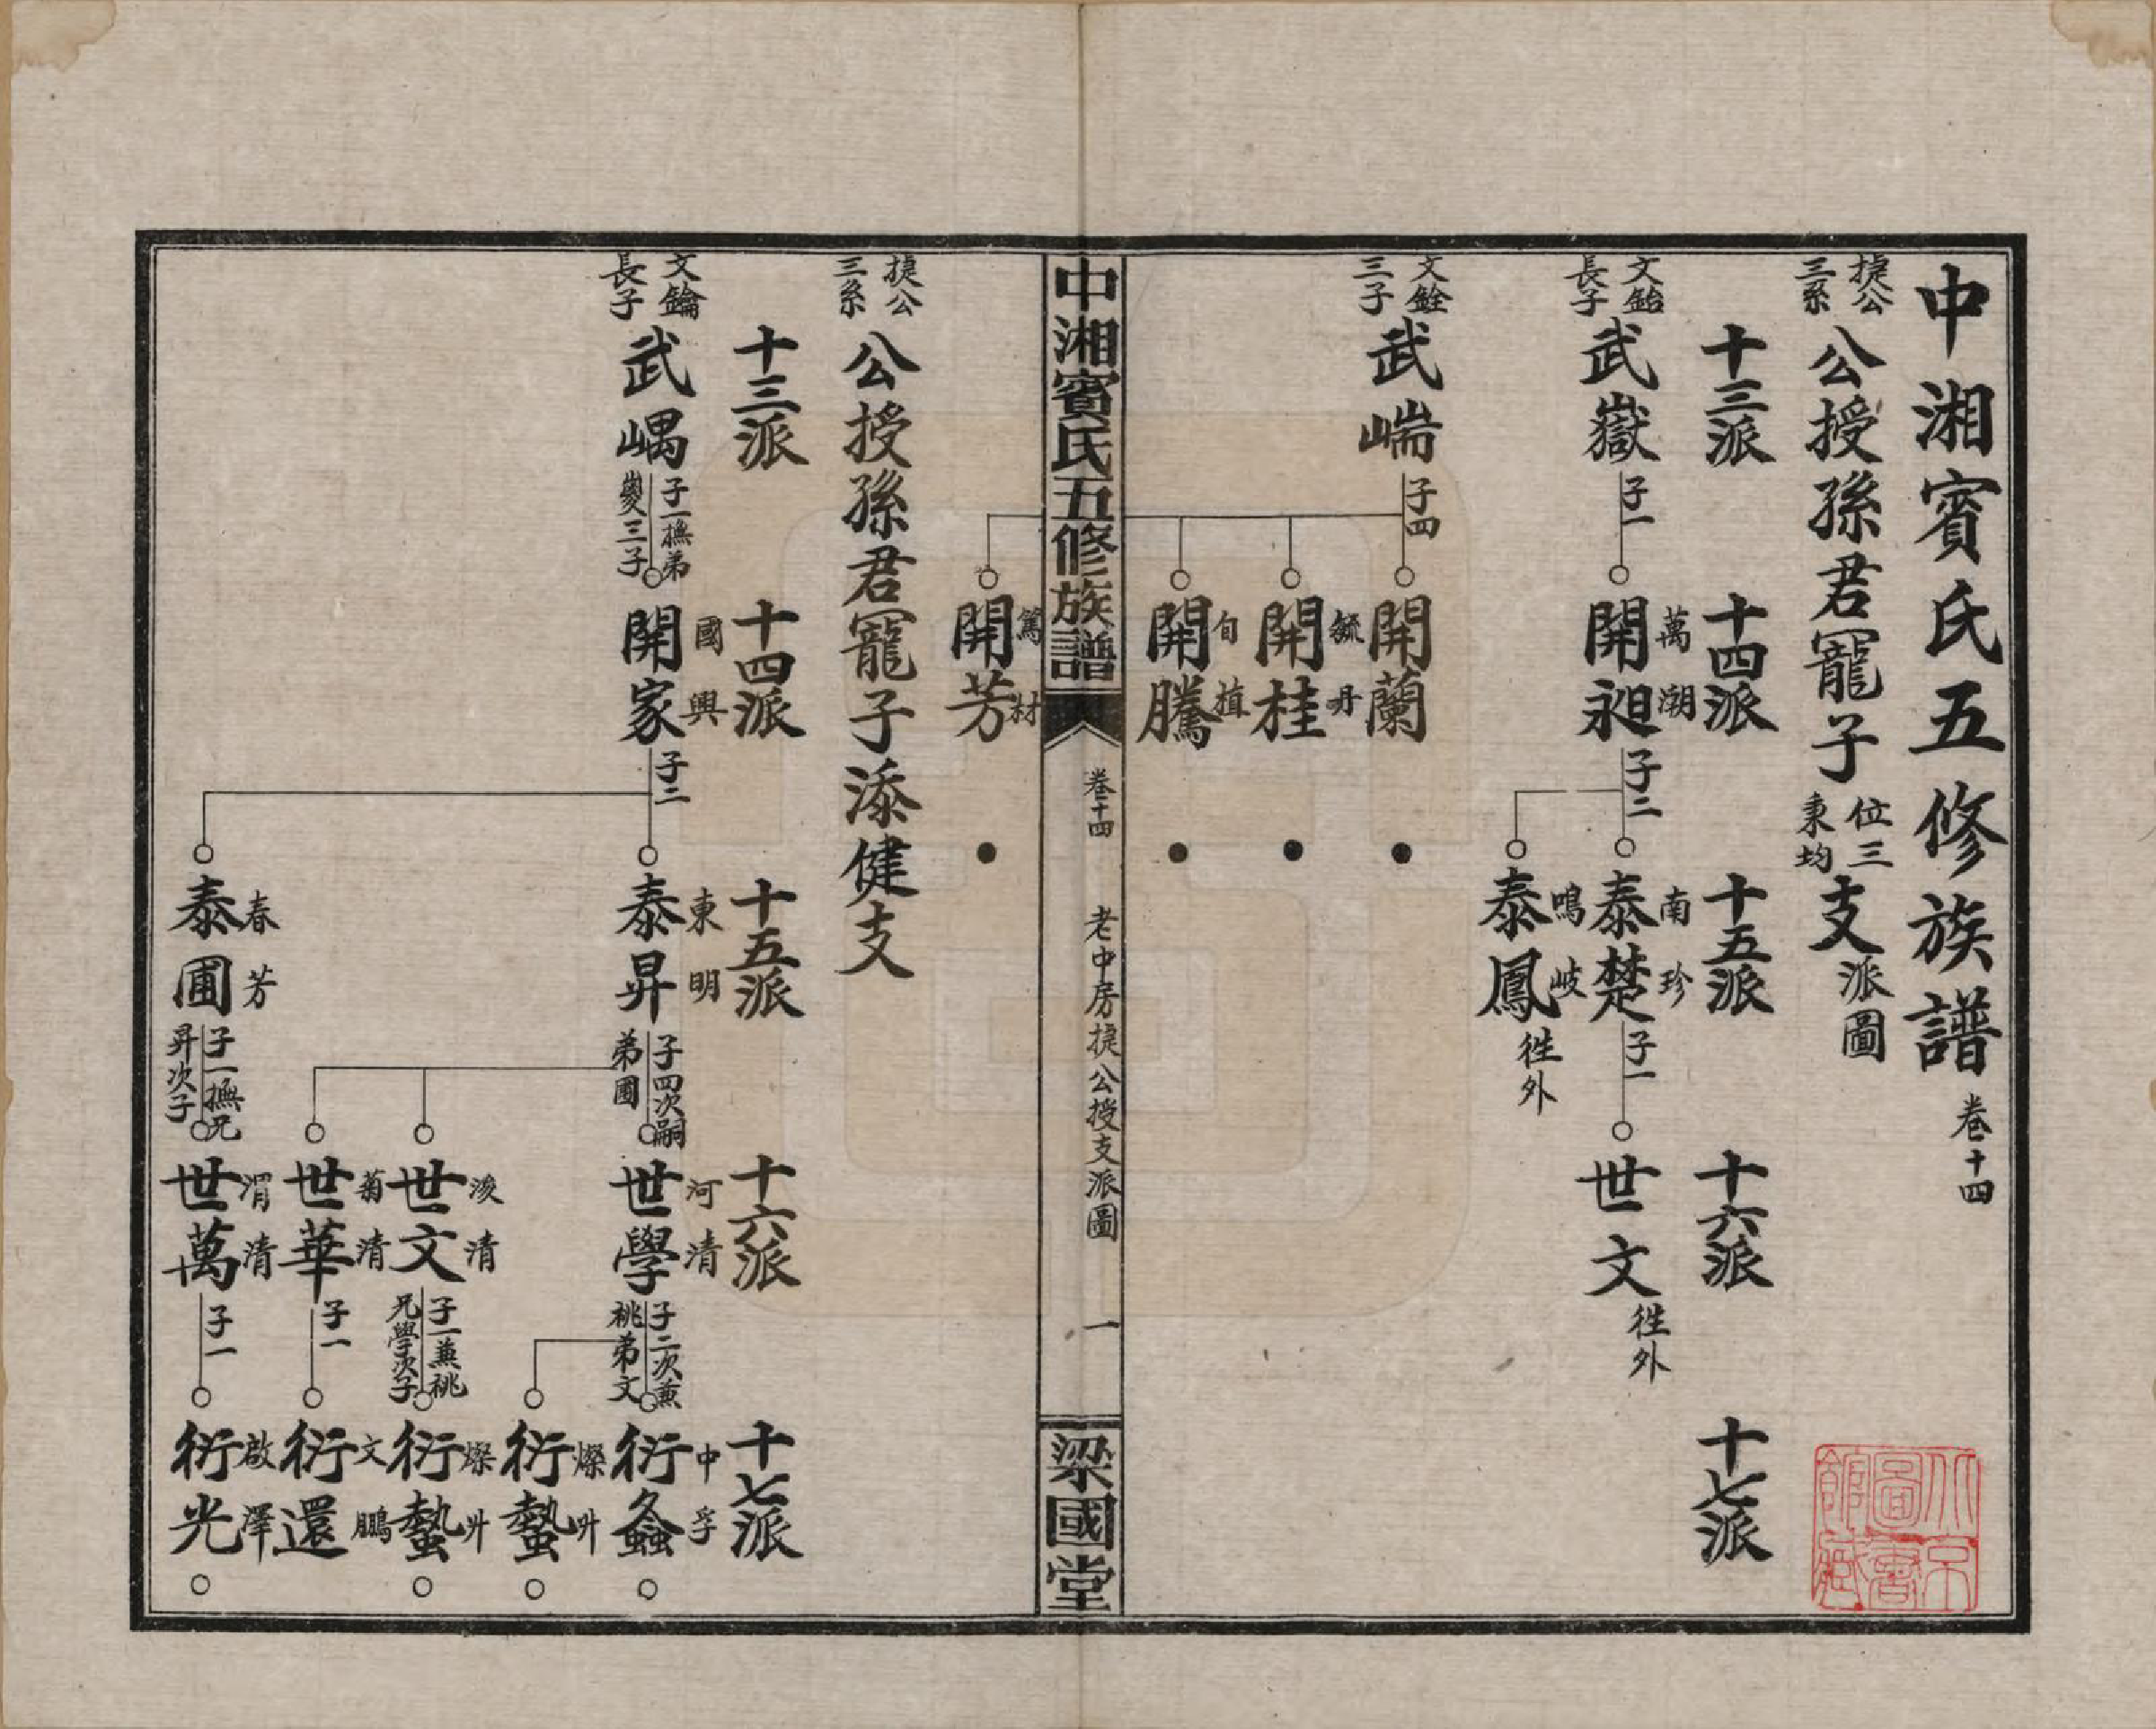 中湘賓氏五修族譜 卷十四
捷公三系 公授孫君寵子 位三秉均 支派圖
十三派 十四派 十五派 十六派 十七派
文鈶長子 武嶽 子一 開昶 子二 泰楚 子一 世文 徃外
萬潮 南珍
鳴岐
泰鳳 徃外
文銓三子 武㟨 子四 開蘭
毓丹
開桂
旬植
開騰
篤材
開芳
中湘賓氏五修族譜 卷十四 老中房捷公授支派圖 一 梁國堂
捷公三系 公授孫君寵子添健支
十三派 十四派 十五派 十六派 十七派
國興 東明 河清 中孚
文鑰長子 武嵎 子一撫弟嶐三子 開家 子二 泰昇 子四次嗣弟圃 世學 子二次兼祧弟文 衍螽
燦升
衍蟄
浚清 燦升
世文 子一兼祧兄學次子 衍蟄
菊清 文鵬
世華 子一 衍還
春芳 渭清 啟澤
泰圃 子一撫兄昇次子 世萬 子一 衍光
北京圖書館藏